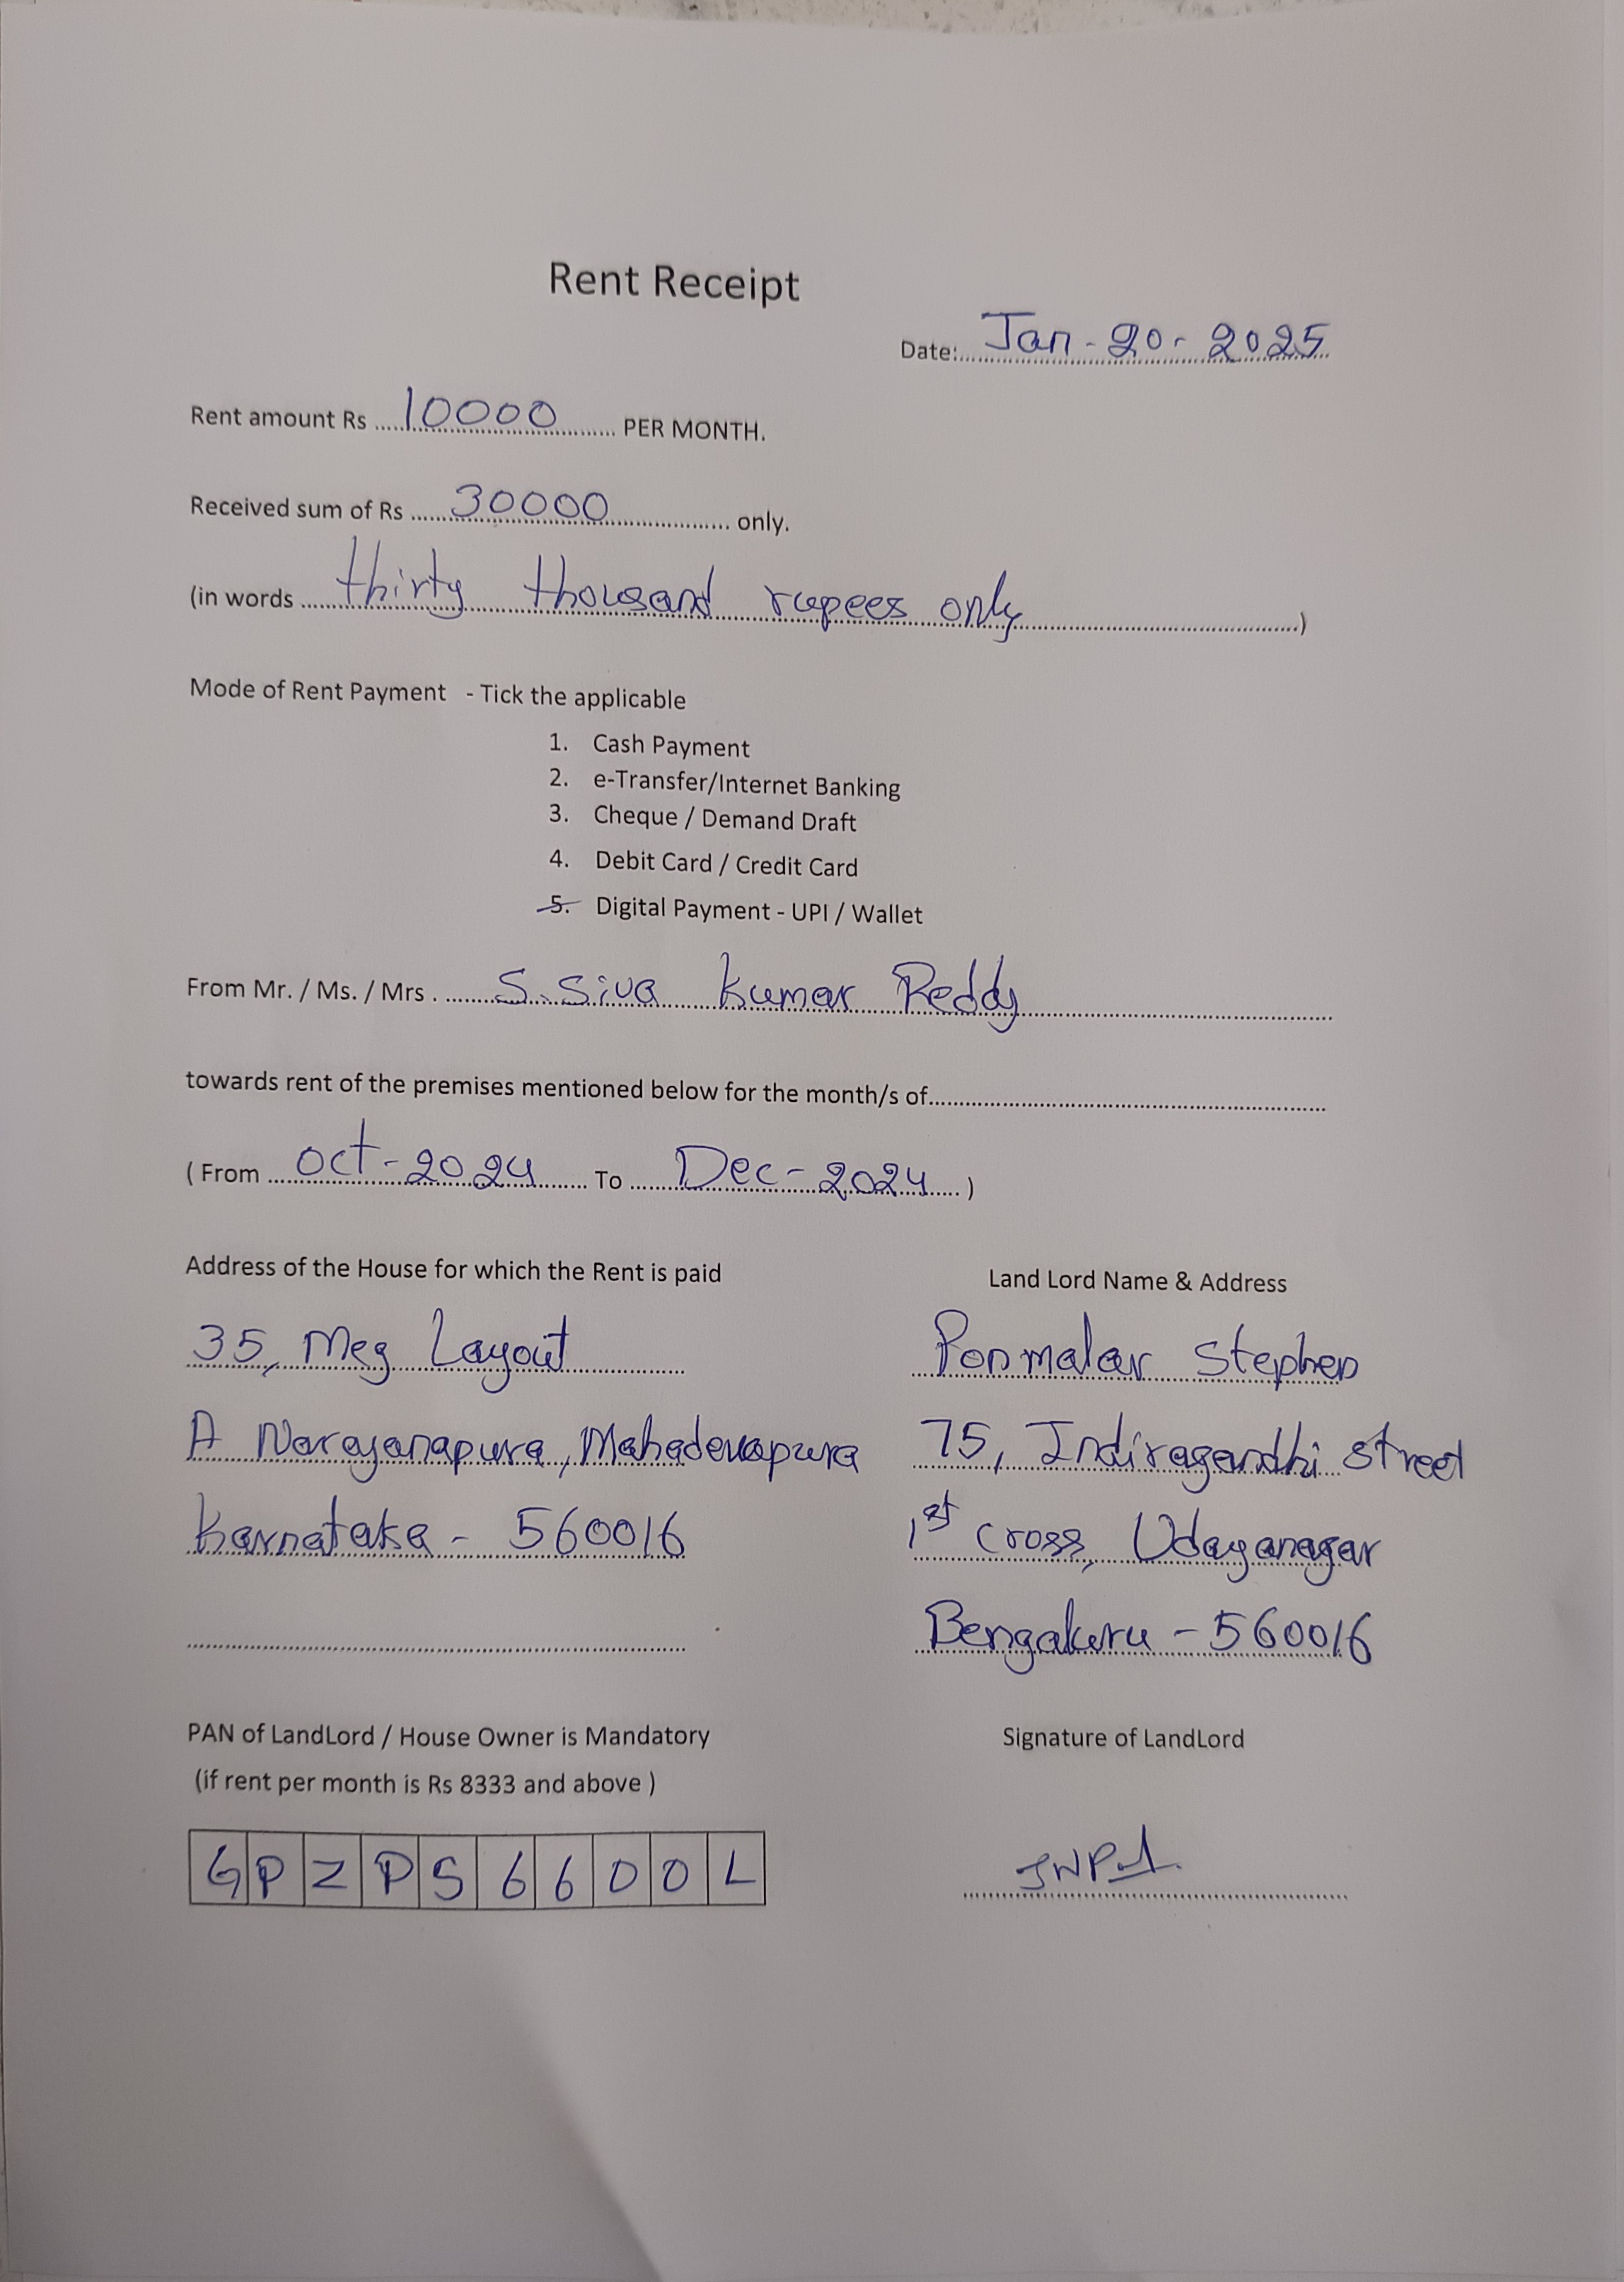 Rent Receipt
Date: Jan-20-2025
Rent amount Rs 10000 PER MONTH.
Received sum of Rs 30000 only.
(in words thirty thousand rupees only)
Mode of Rent Payment - Tick the applicable
1. Cash Payment
2. e-Transfer/Internet Banking
3. Cheque / Demand Draft
4. Debit Card / Credit Card
5. Digital Payment - UPI / Wallet
From Mr. / Ms. / Mrs . S.Siva Kumar Reddy
towards rent of the premises mentioned below for the month/s of
( From Oct-2024 To Dec-2024 )
Address of the House for which the Rent is paid
35, Meg Layout
A Narayanapura, Mahadevapura
Karnataka - 560016
Land Lord Name & Address
Ponmalar Stephen
75, Indiragandhi street
1st cross, Udayanagar
Bengaluru - 560016
PAN of LandLord / House Owner is Mandatory
(if rent per month is Rs 8333 and above )
GPZPS6600L
Signature of LandLord